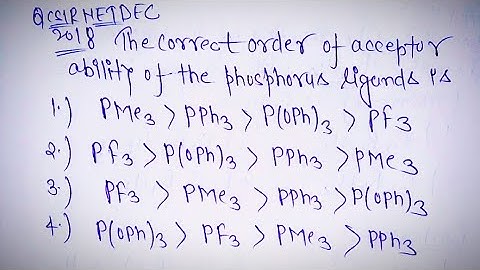 Q CSIR NET DEC
2018 The correct order of acceptor
ability of the phosphorus ligands is
1.) PMe3 > PPh3 > P(OPh)3 > Pf3
2.) Pf3 > P(OPh)3 > PPh3 > PMe3
3.) Pf3 > PMe3 > PPh3 > P(OPh)3
4.) P(OPh)3 > Pf3 > PMe3 > PPh3